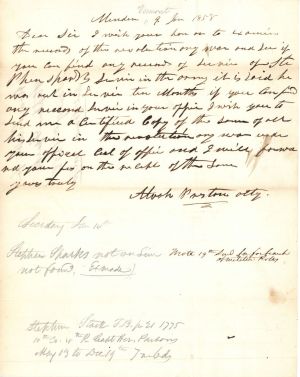 Vermont
Menden 9 Jan 1858
Dear Sir I wish your honor to examin
the record of the revolutionary war and see if
you can find any record of service of Ste
phen Spark's Servis in the army it is said he
was out in Servis ten Months if you can find
any record Servis in your office I wish you to
send me a Certified Copy of the same of all
his Servis in the revolution any war under
your officeal Seal of office and I will forwa
rd your fee on the receipt of the same
yours truly
Alvah Preston atty.
Secretary
Stephen Sparks not on Serv
not found.
Wrote 19th
of militia Rolls
Stephen 1775
10th Co. 4th R. Capt
May 13 to Dec 19th 7 m 6 dy